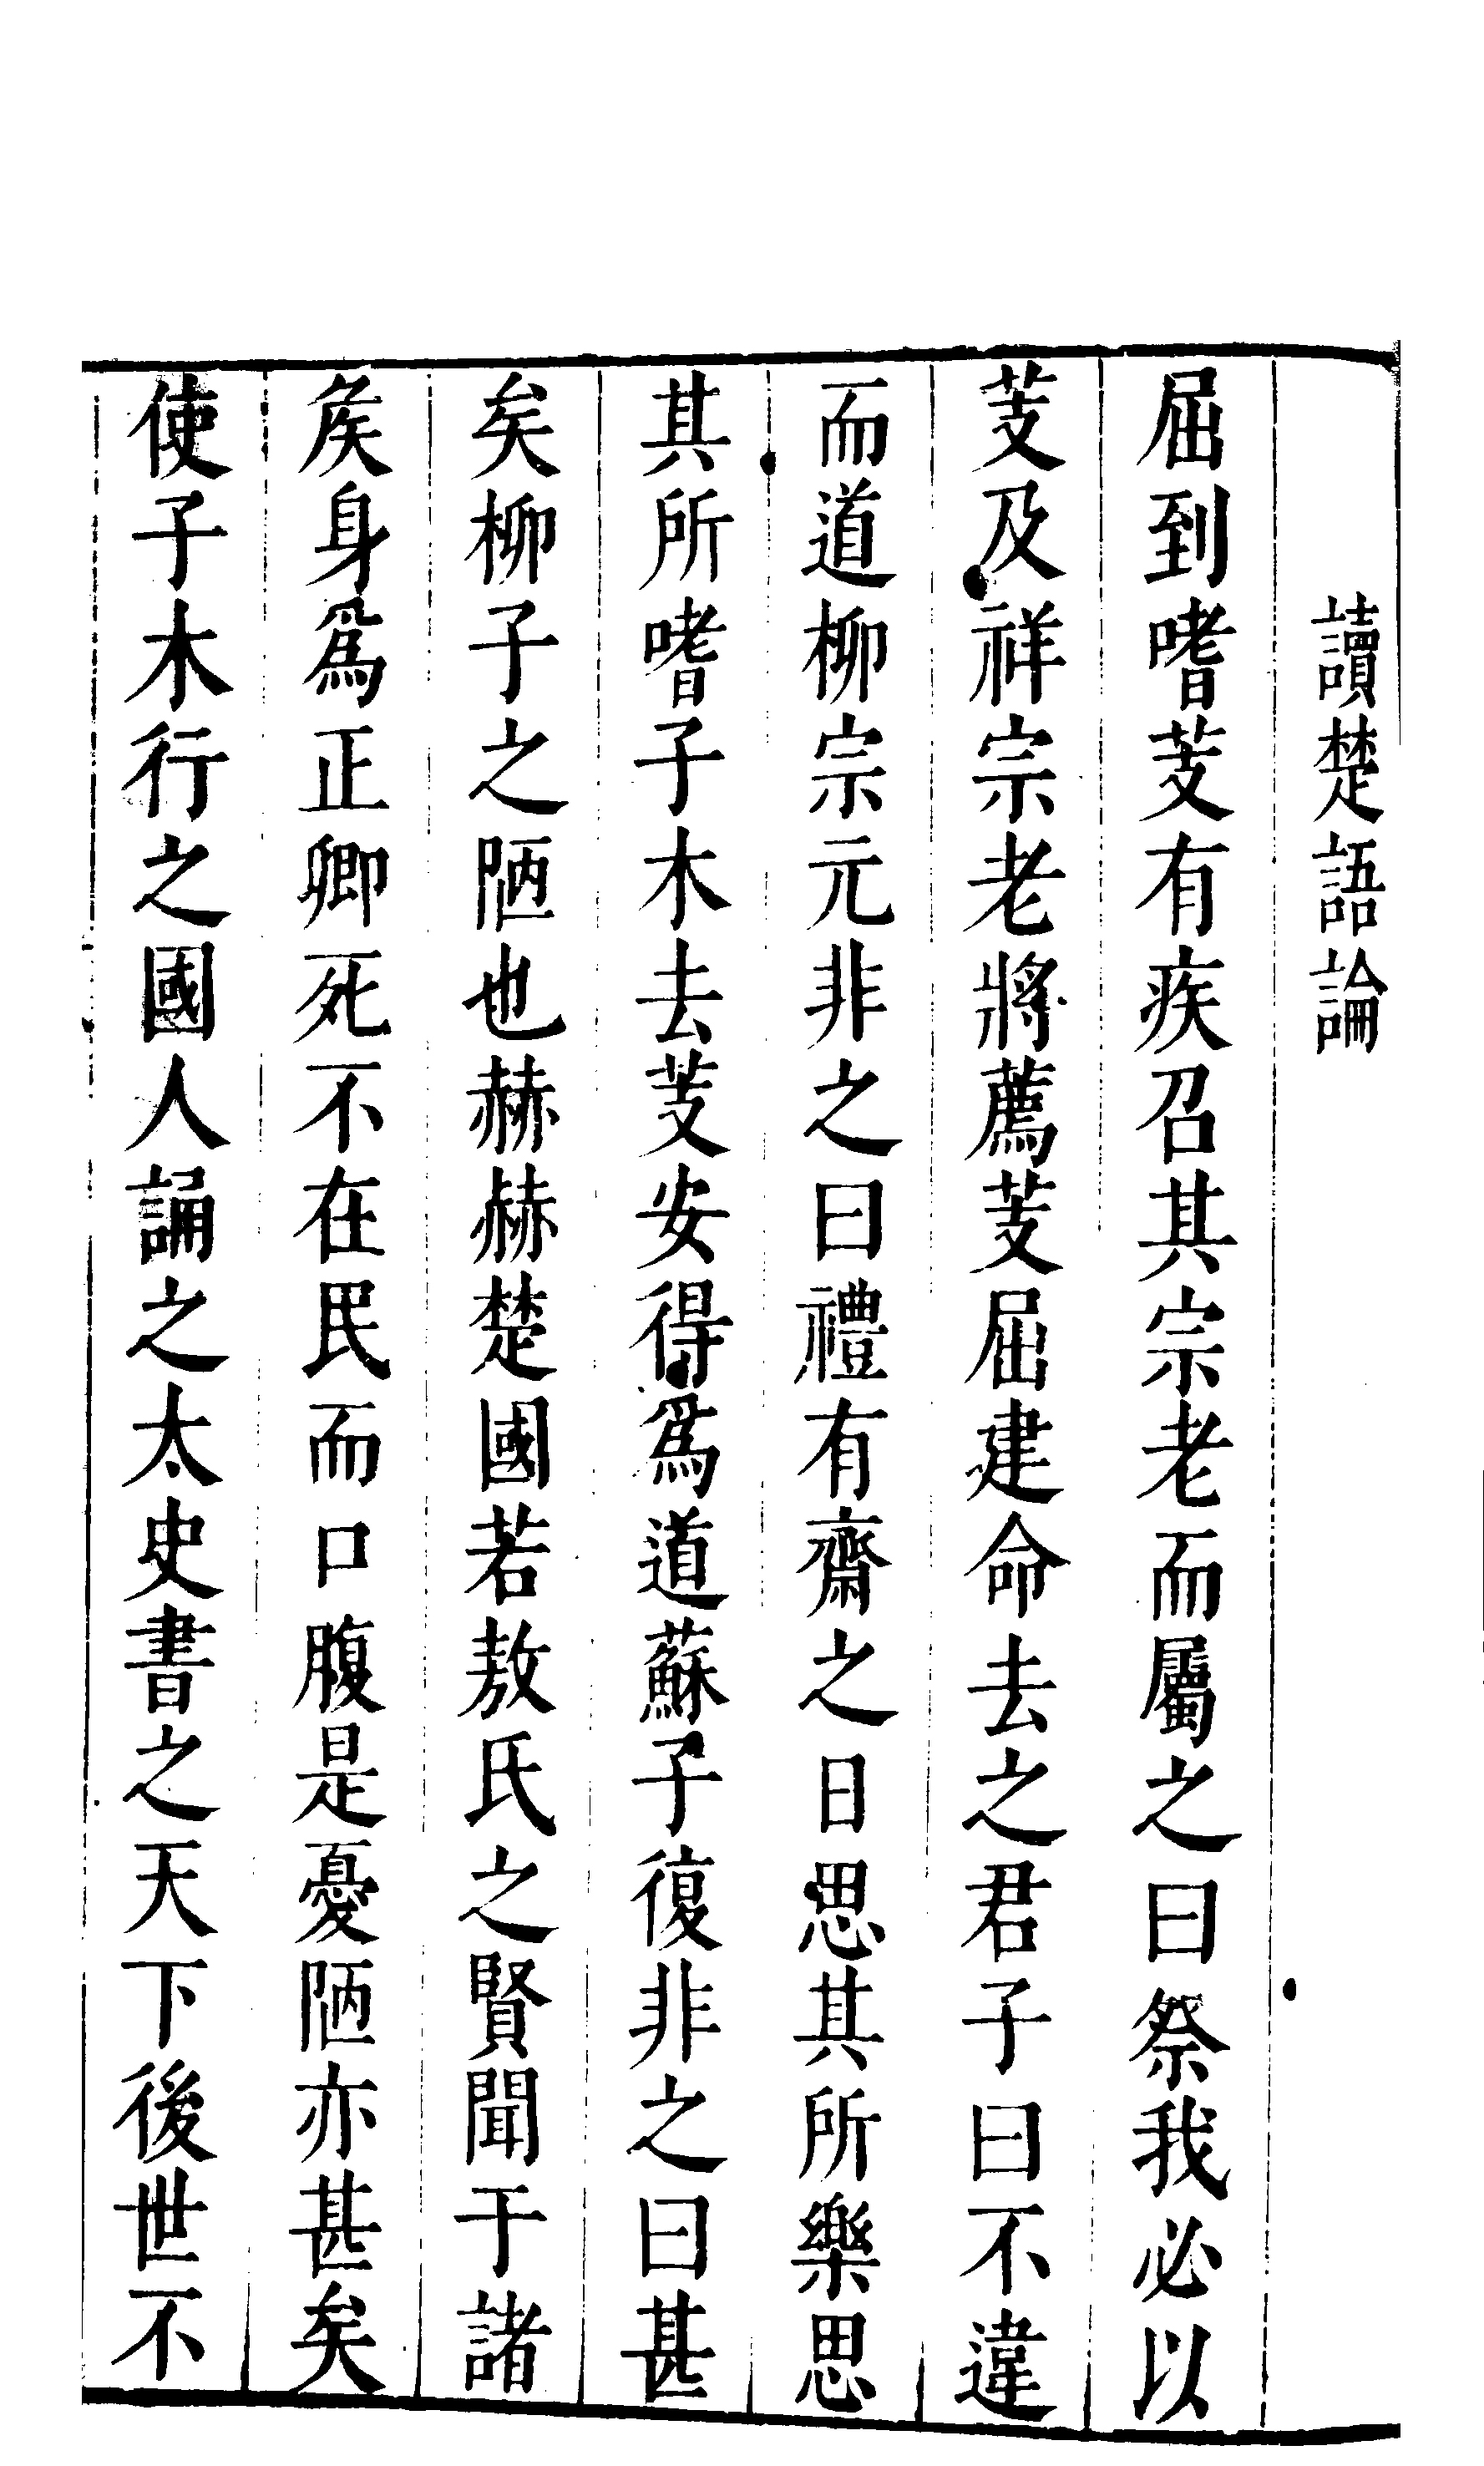 讀楚語論
屈到嗜芰有疾召其宗老而屬之曰祭我必以
芰及祥宗老將薦芰屈建命去之君子曰不違
而道柳宗元非之曰禮有齋之日思其所樂思
其所嗜子木去芰安得爲道蘇子復非之曰甚
矣柳子之陋也赫赫楚國若敖氏之賢聞于諸
矦身爲正卿死不在民而口腹是憂陋亦甚矣
使子木行之國人誦之太史書之天下後世不